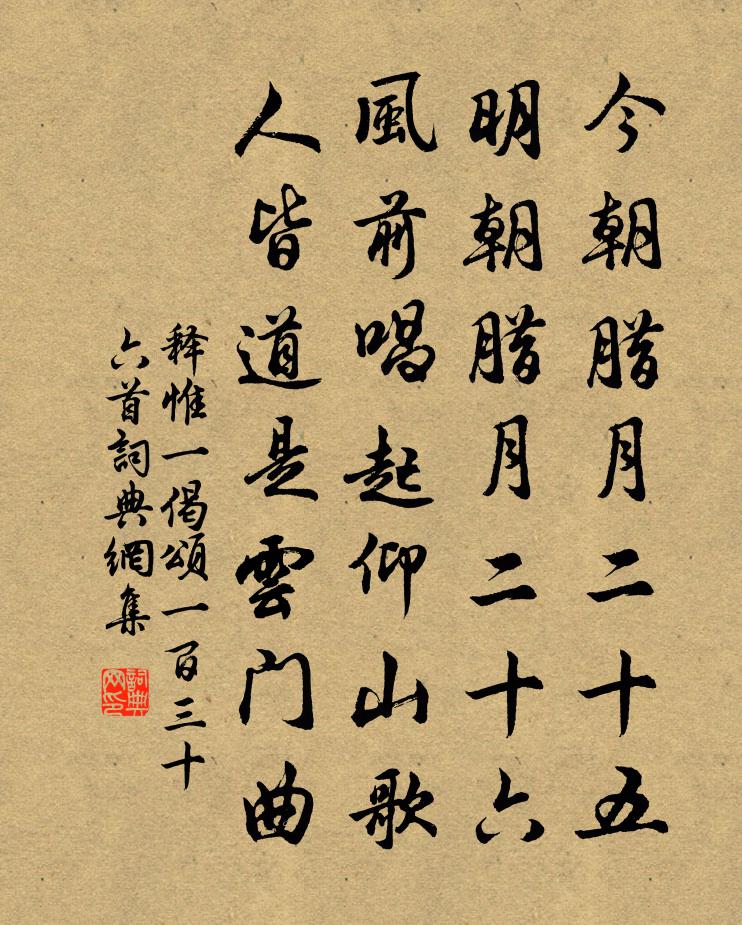 今朝腊月二十五
明朝腊月二十六
風前唱起仰山歌
人皆道是雲门曲
释惟一偈頌一百三十
六首詞典網集
詞典
网印